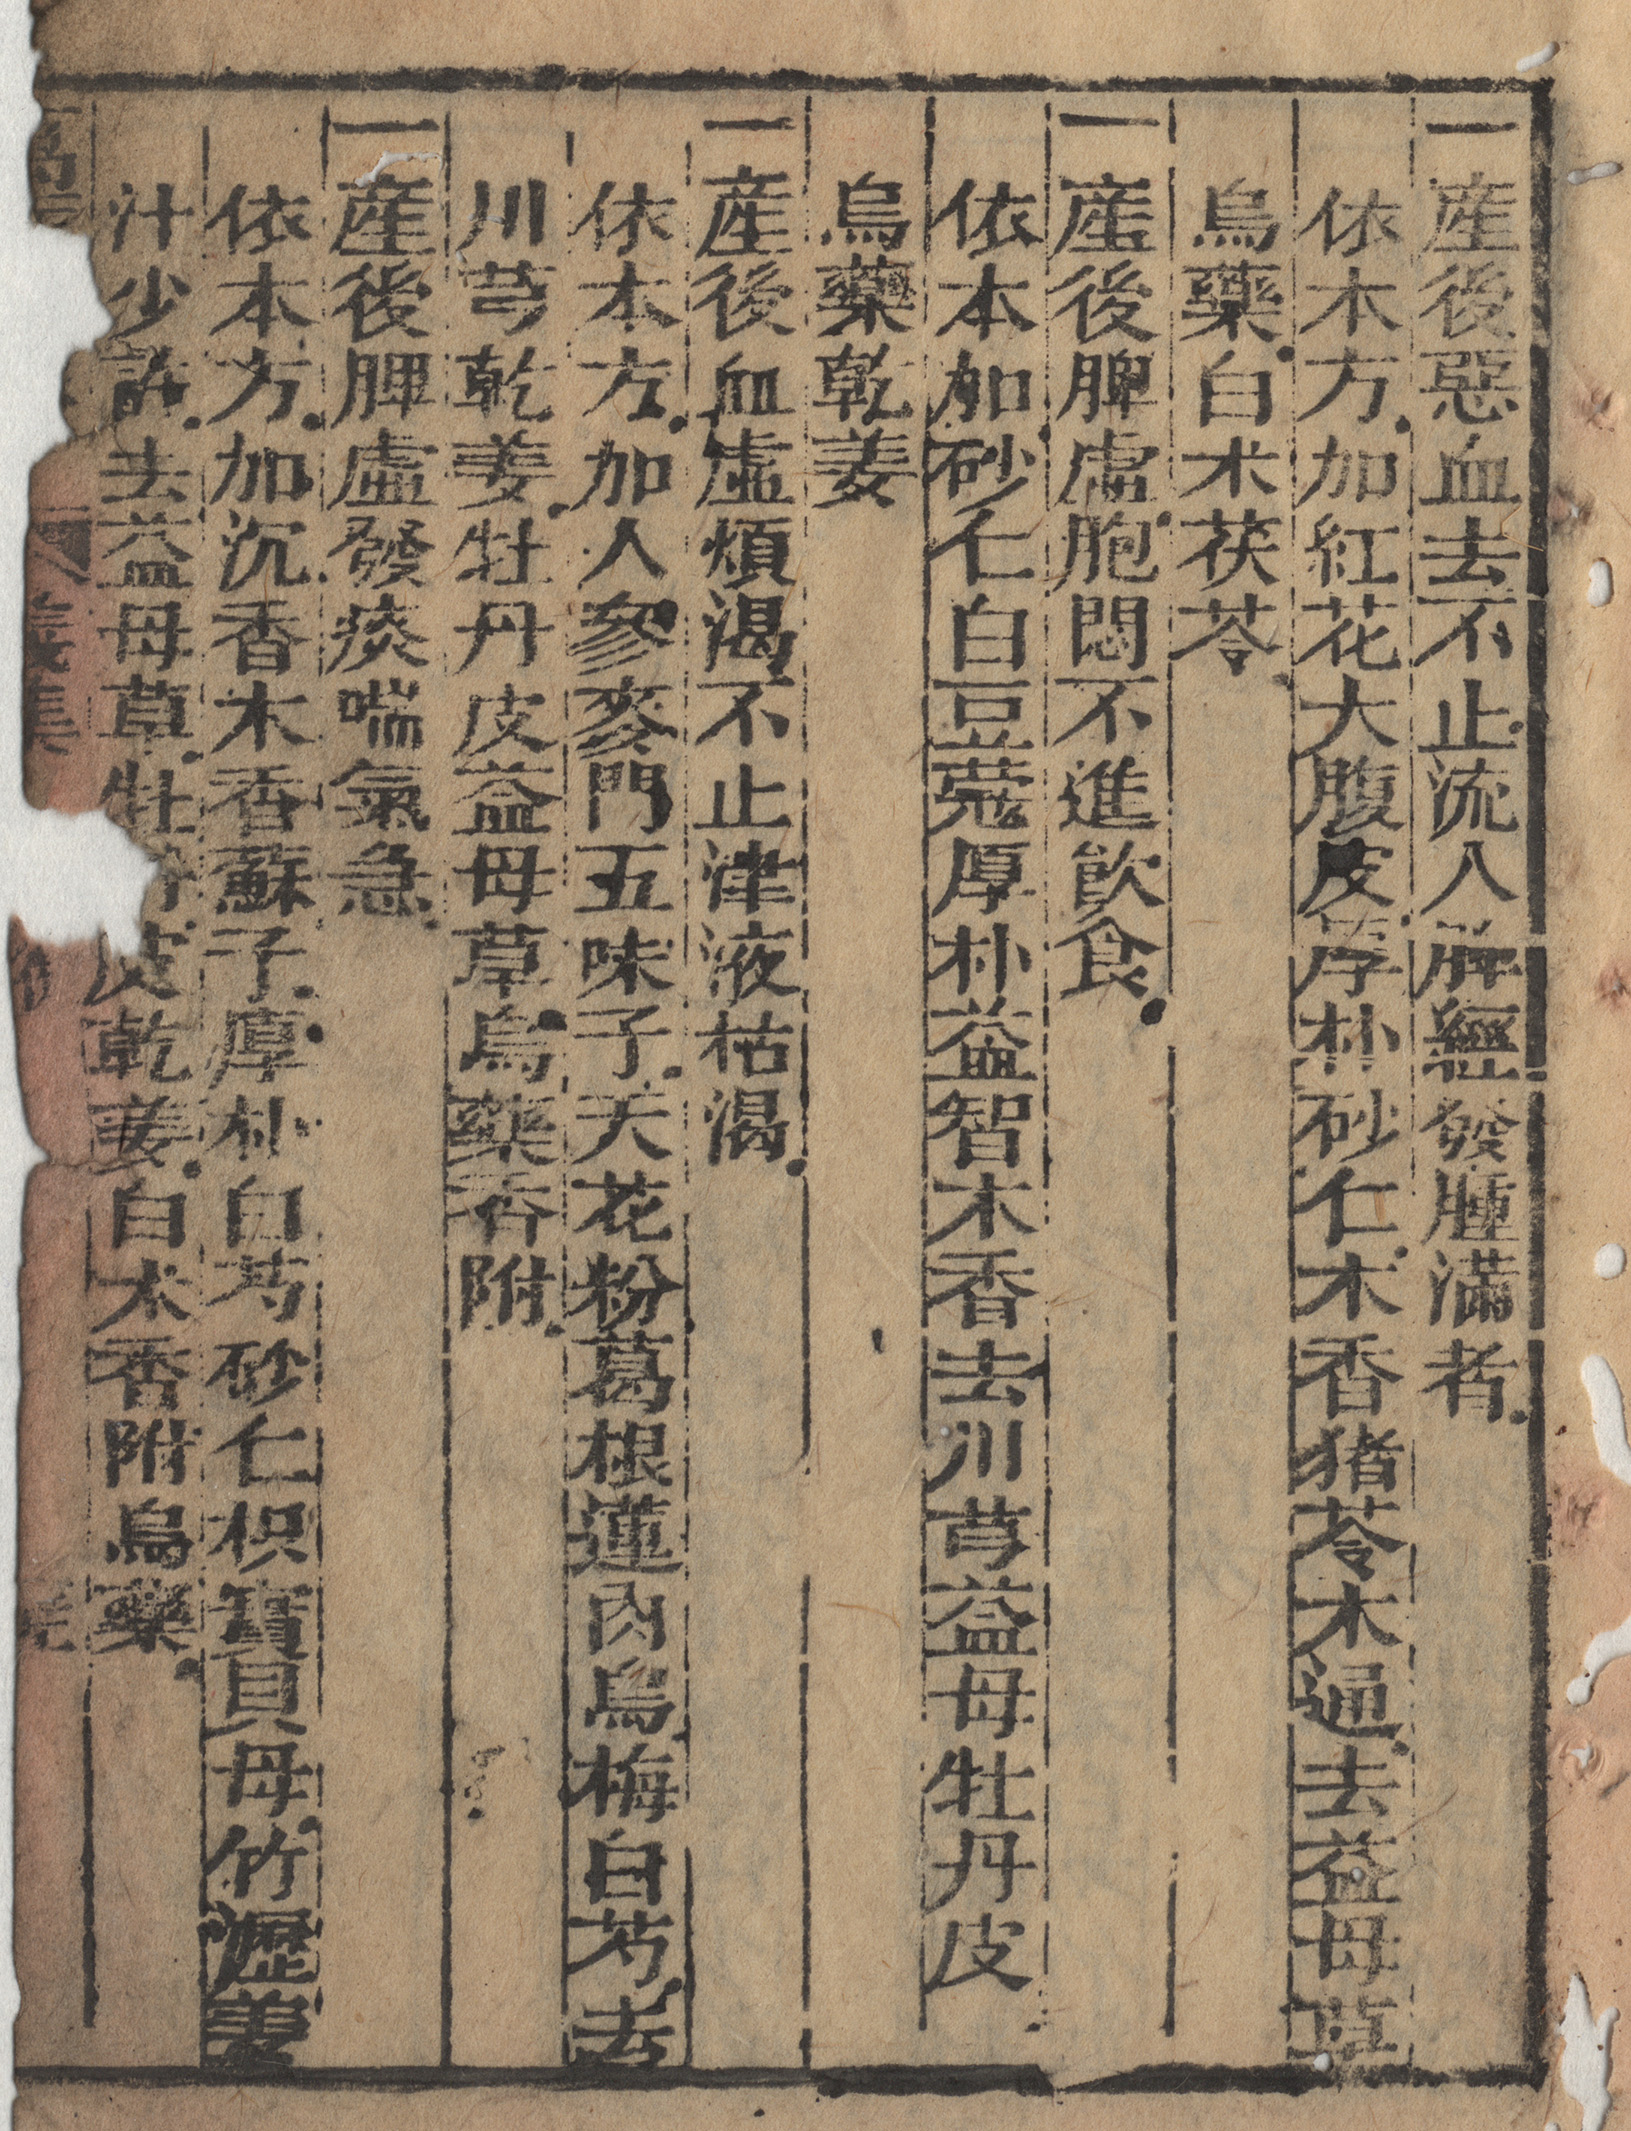 一產後惡血去不止流入脾經發腫滿者
依本方加紅花大腹皮厚朴砂仁木香猪苓木通去益母草
烏藥白朮茯苓
一產後脾虛胞悶不進飲食
依本加砂仁白豆蔻厚朴益智木香去川芎益母牡丹皮
烏藥乾姜
一產後血虛煩渴不止津液枯渴
依本方加人參麥門五味子天花粉葛根蓮肉烏梅白芍去
川芎乾姜牡丹皮益母草烏藥香附
一產後脾虛發痰喘氣急
依本方加沉香木香蘇子厚朴白芍砂仁枳實貝母竹瀝姜
汁少許去益母草牡皮乾姜白朮香附烏藥